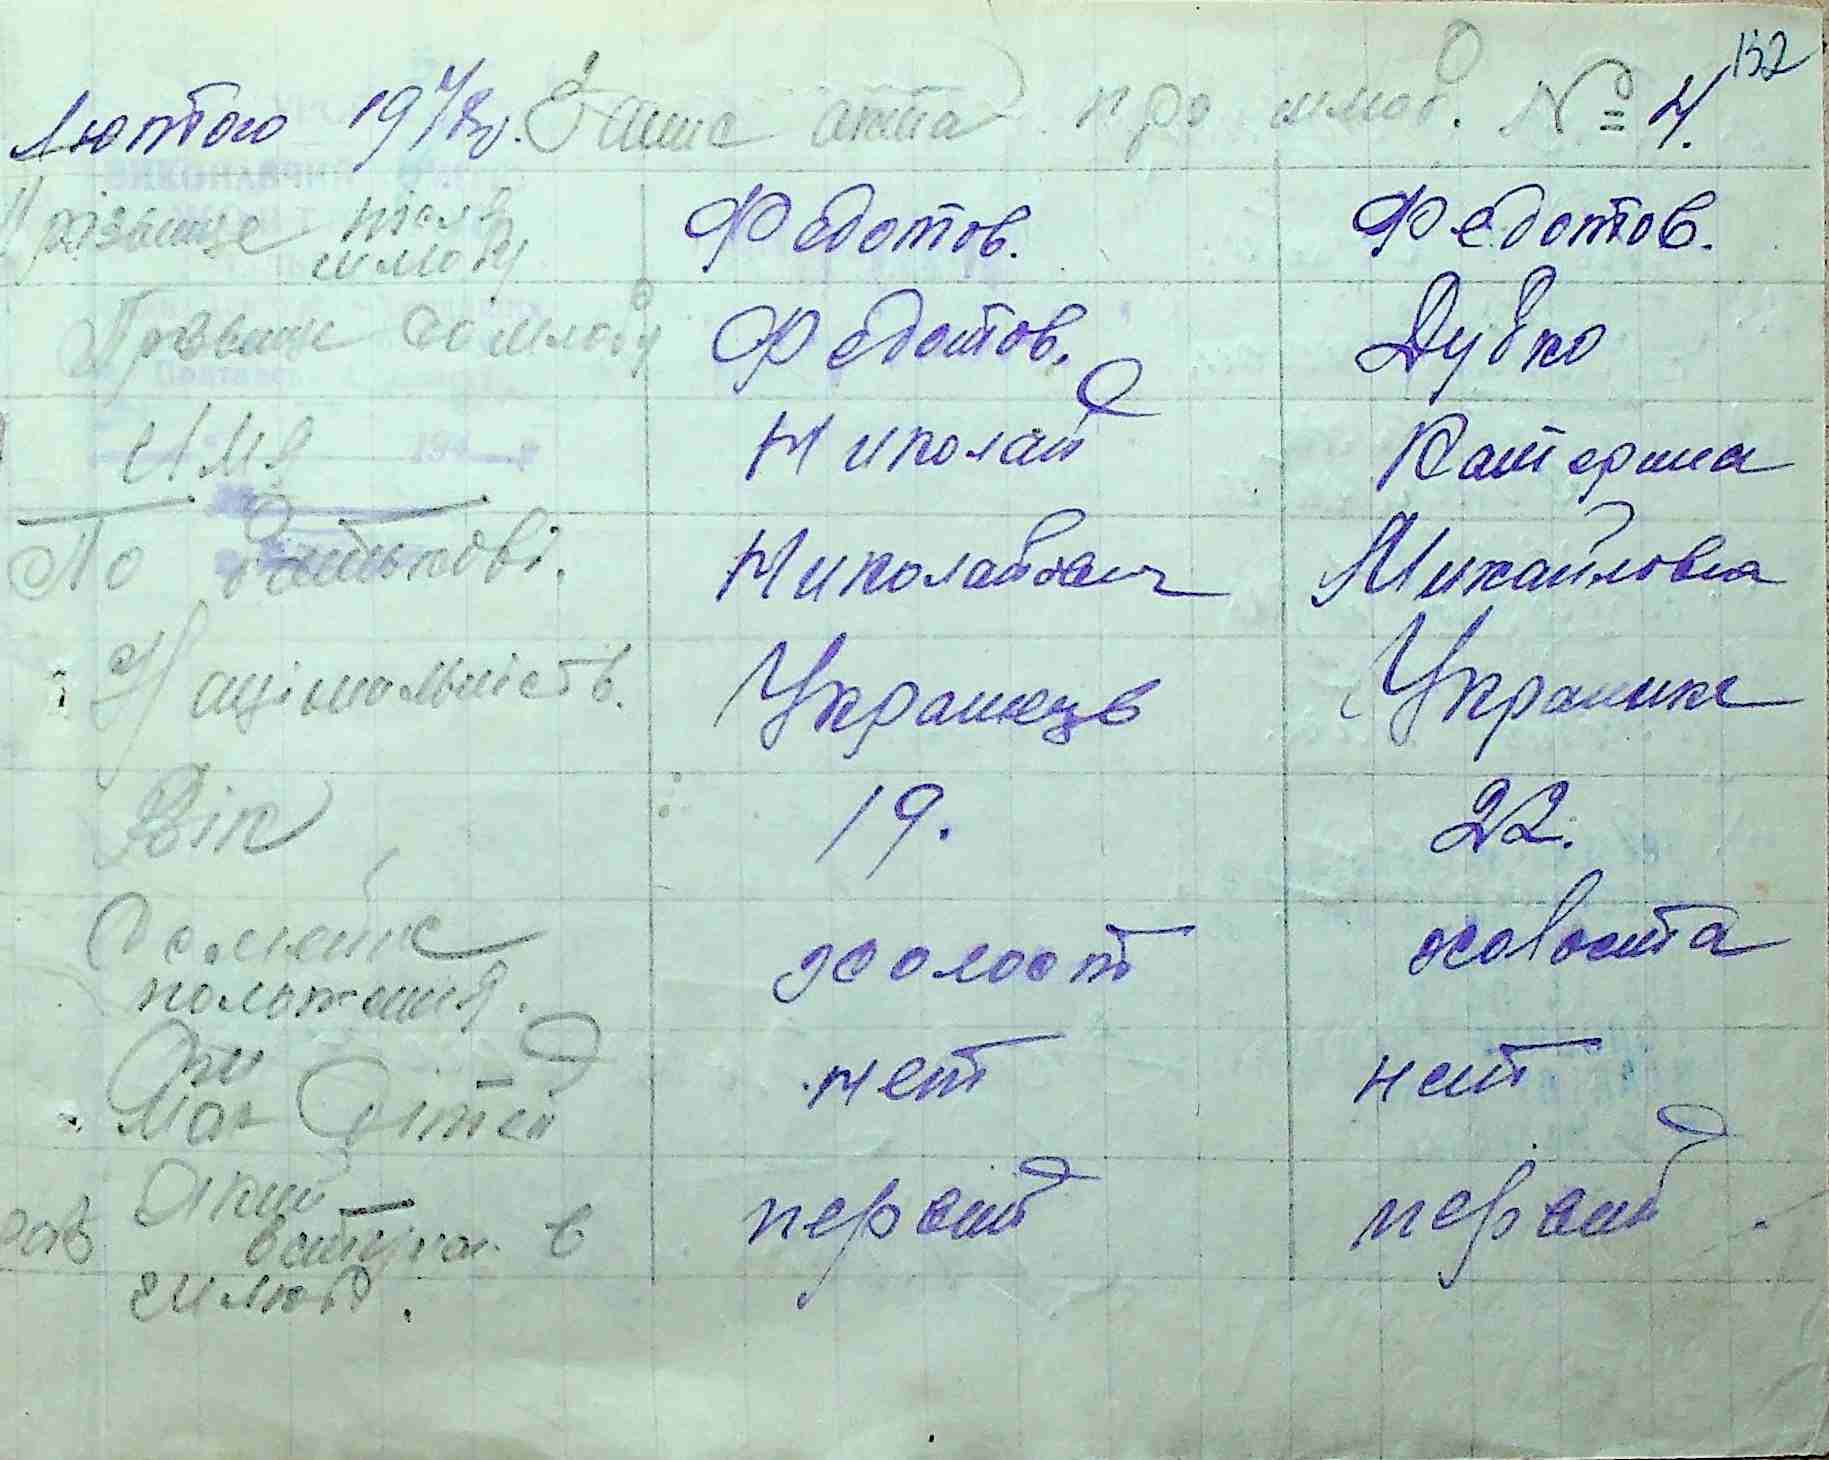 132
Лютого 19 Запис акта про шлюб. № 4.
Прізвище після шлюбу Федотов. Федотов.
Прозвище до шлюбу Федотов. Дубко
Имя Николай Катерина
По батькові. Николайович Михайловна
Національність. Украинец Украинка
Вік 19. 22.
Семейне положения. холост холоста
Чи має дітей нет нет
Який раз вступає в шлюб. первий первий